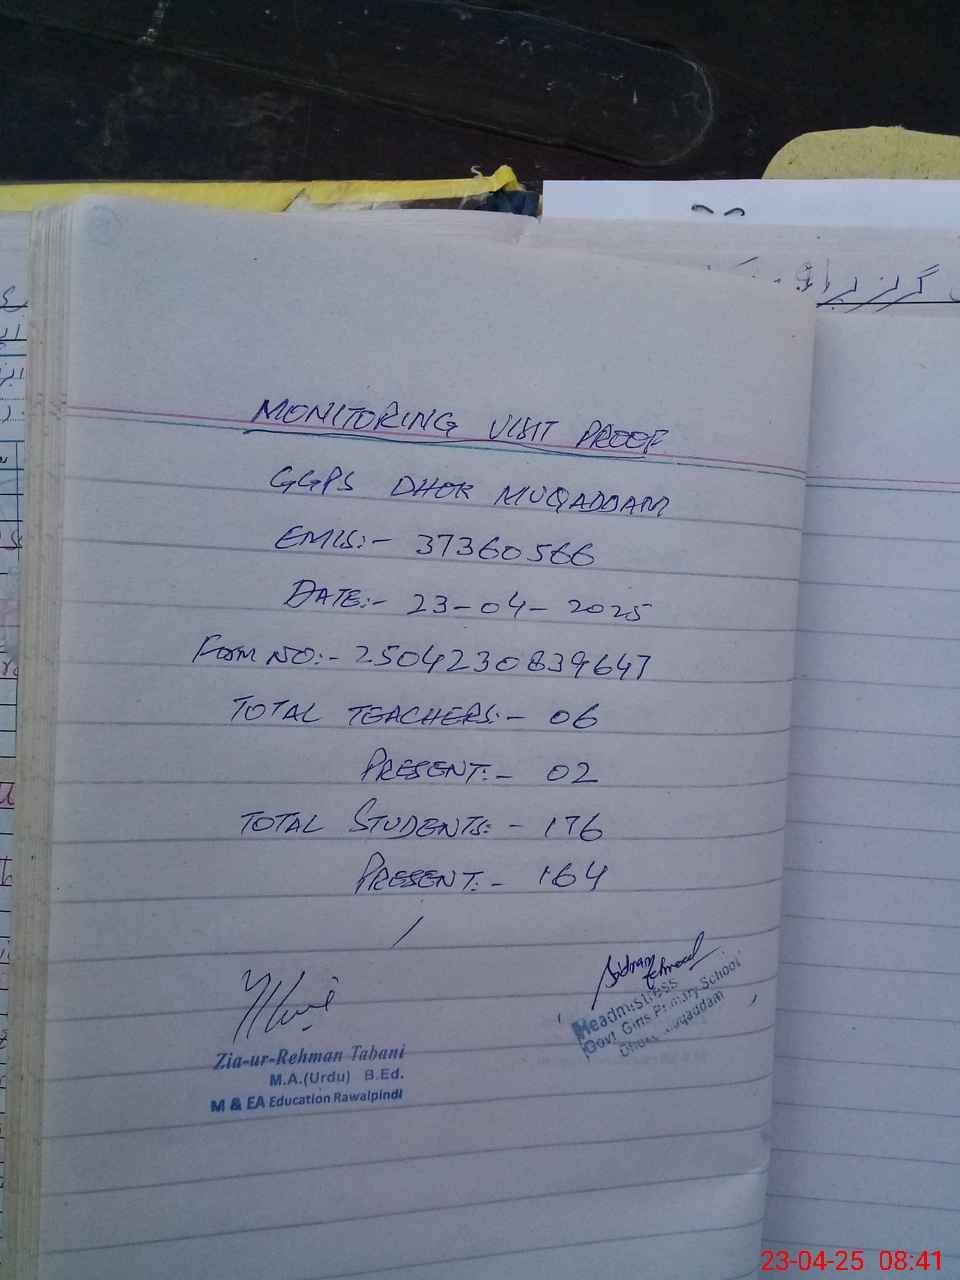 MONITORING VISIT PROOF
GGPS DHOK MUQADDAM
EMIS:- 37360566
DATE:- 23-04-2025
Form NO:- 2504230839647
TOTAL TEACHERS:- 06
PRESENT:- 02
TOTAL STUDENTS:- 176
PRESENT:- 164
Zia-ur-Rehman Tabani
M.A.(Urdu) B.Ed.
M & EA Education Rawalpindi
Headmistress
Govt Girls Primary School
Dhok Muqaddam
23-04-25 08:41